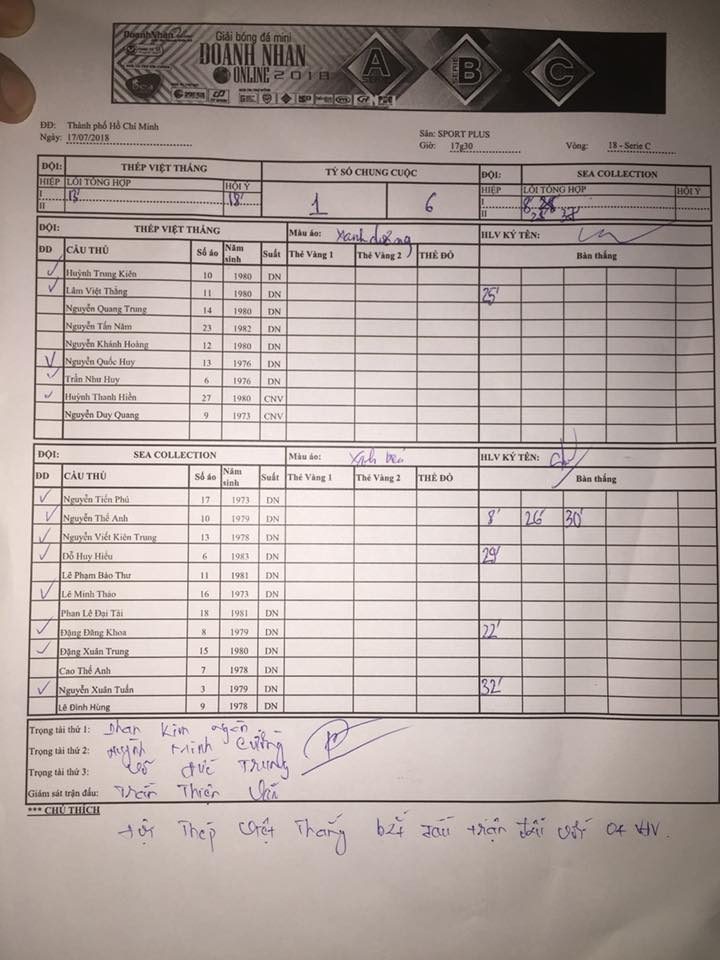 DoanhNhan
Giải bóng đá mini
DOANH NHAN
ONLINE 2018
A
B
C
SERIE
ĐĐ: Thành phố Hồ Chí Minh
Ngày: 17/07/2018
Sân: SPORT PLUS
Giờ: 17g30 Vòng: 18 - Serie C
ĐỘI: THÉP VIỆT THẮNG TỶ SỐ CHUNG CUỘC ĐỘI: SEA COLLECTION
HIỆP LỖI TỔNG HỢP HỘI Ý 1 6 HIỆP LỖI TỔNG HỢP HỘI Ý
I 13' 18' I 8'
II II
ĐỘI: THÉP VIỆT THẮNG Màu áo: xanh dương HLV KÝ TÊN:
ĐD CẦU THỦ Số áo Năm sinh Suất Thẻ Vàng 1 Thẻ Vàng 2 THẺ ĐỎ Bàn thắng
Huỳnh Trung Kiên 10 1980 DN
Lâm Việt Thắng 11 1980 DN 25'
Nguyễn Quang Trung 14 1980 DN
Nguyễn Tấn Năm 23 1982 DN
Nguyễn Khánh Hoàng 12 1980 DN
Nguyễn Quốc Huy 13 1976 DN
Trần Như Huy 6 1976 DN
Huỳnh Thanh Hiền 27 1980 CNV
Nguyễn Duy Quang 9 1973 CNV
ĐỘI: SEA COLLECTION Màu áo: HLV KÝ TÊN:
ĐD CẦU THỦ Số áo Năm sinh Suất Thẻ Vàng 1 Thẻ Vàng 2 THẺ ĐỎ Bàn thắng
Nguyễn Tiến Phú 17 1973 DN
Nguyễn Thế Anh 10 1979 DN 8' 26' 30'
Nguyễn Viết Kiên Trung 13 1978 DN
Đỗ Huy Hiếu 6 1983 DN 29'
Lê Phạm Bảo Thư 11 1981 DN
Lê Minh Thảo 16 1973 DN
Phan Lê Đại Tài 18 1981 DN
Đặng Đăng Khoa 8 1979 DN 22'
Đặng Xuân Trung 15 1980 DN
Cao Thế Anh 7 1978 DN
Nguyễn Xuân Tuấn 3 1979 DN 32'
Lê Đình Hùng 9 1978 DN
Trọng tài thứ 1: Phan Kim Ngân
Trọng tài thứ 2: Huỳnh Minh Cường
Trọng tài thứ 3: Võ Đức Trung
Giám sát trận đấu: Trần Thiện
*** CHÚ THÍCH
Đội Thép Việt Thắng bắt đầu trận đấu với 04 VĐV.